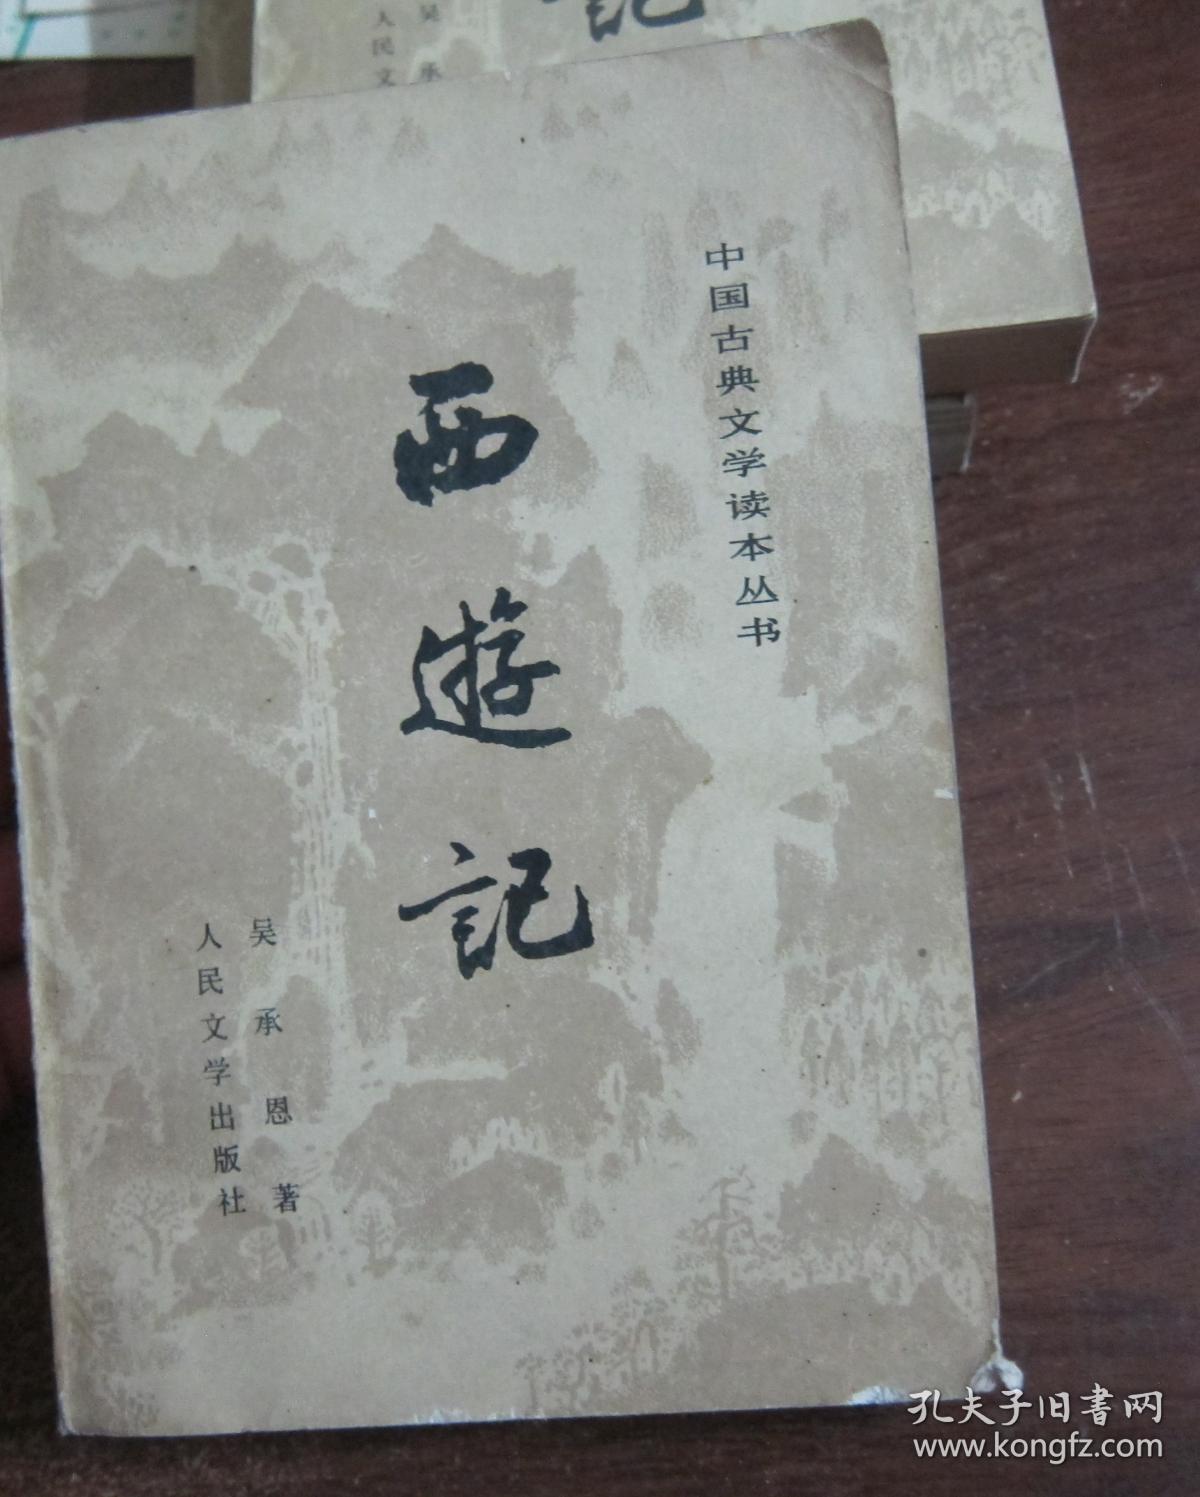 中国古典文学读本丛书
西遊記
吴承恩著
人民文学出版社
記
吴承
人民文
孔夫子旧書网
www.kongfz.com